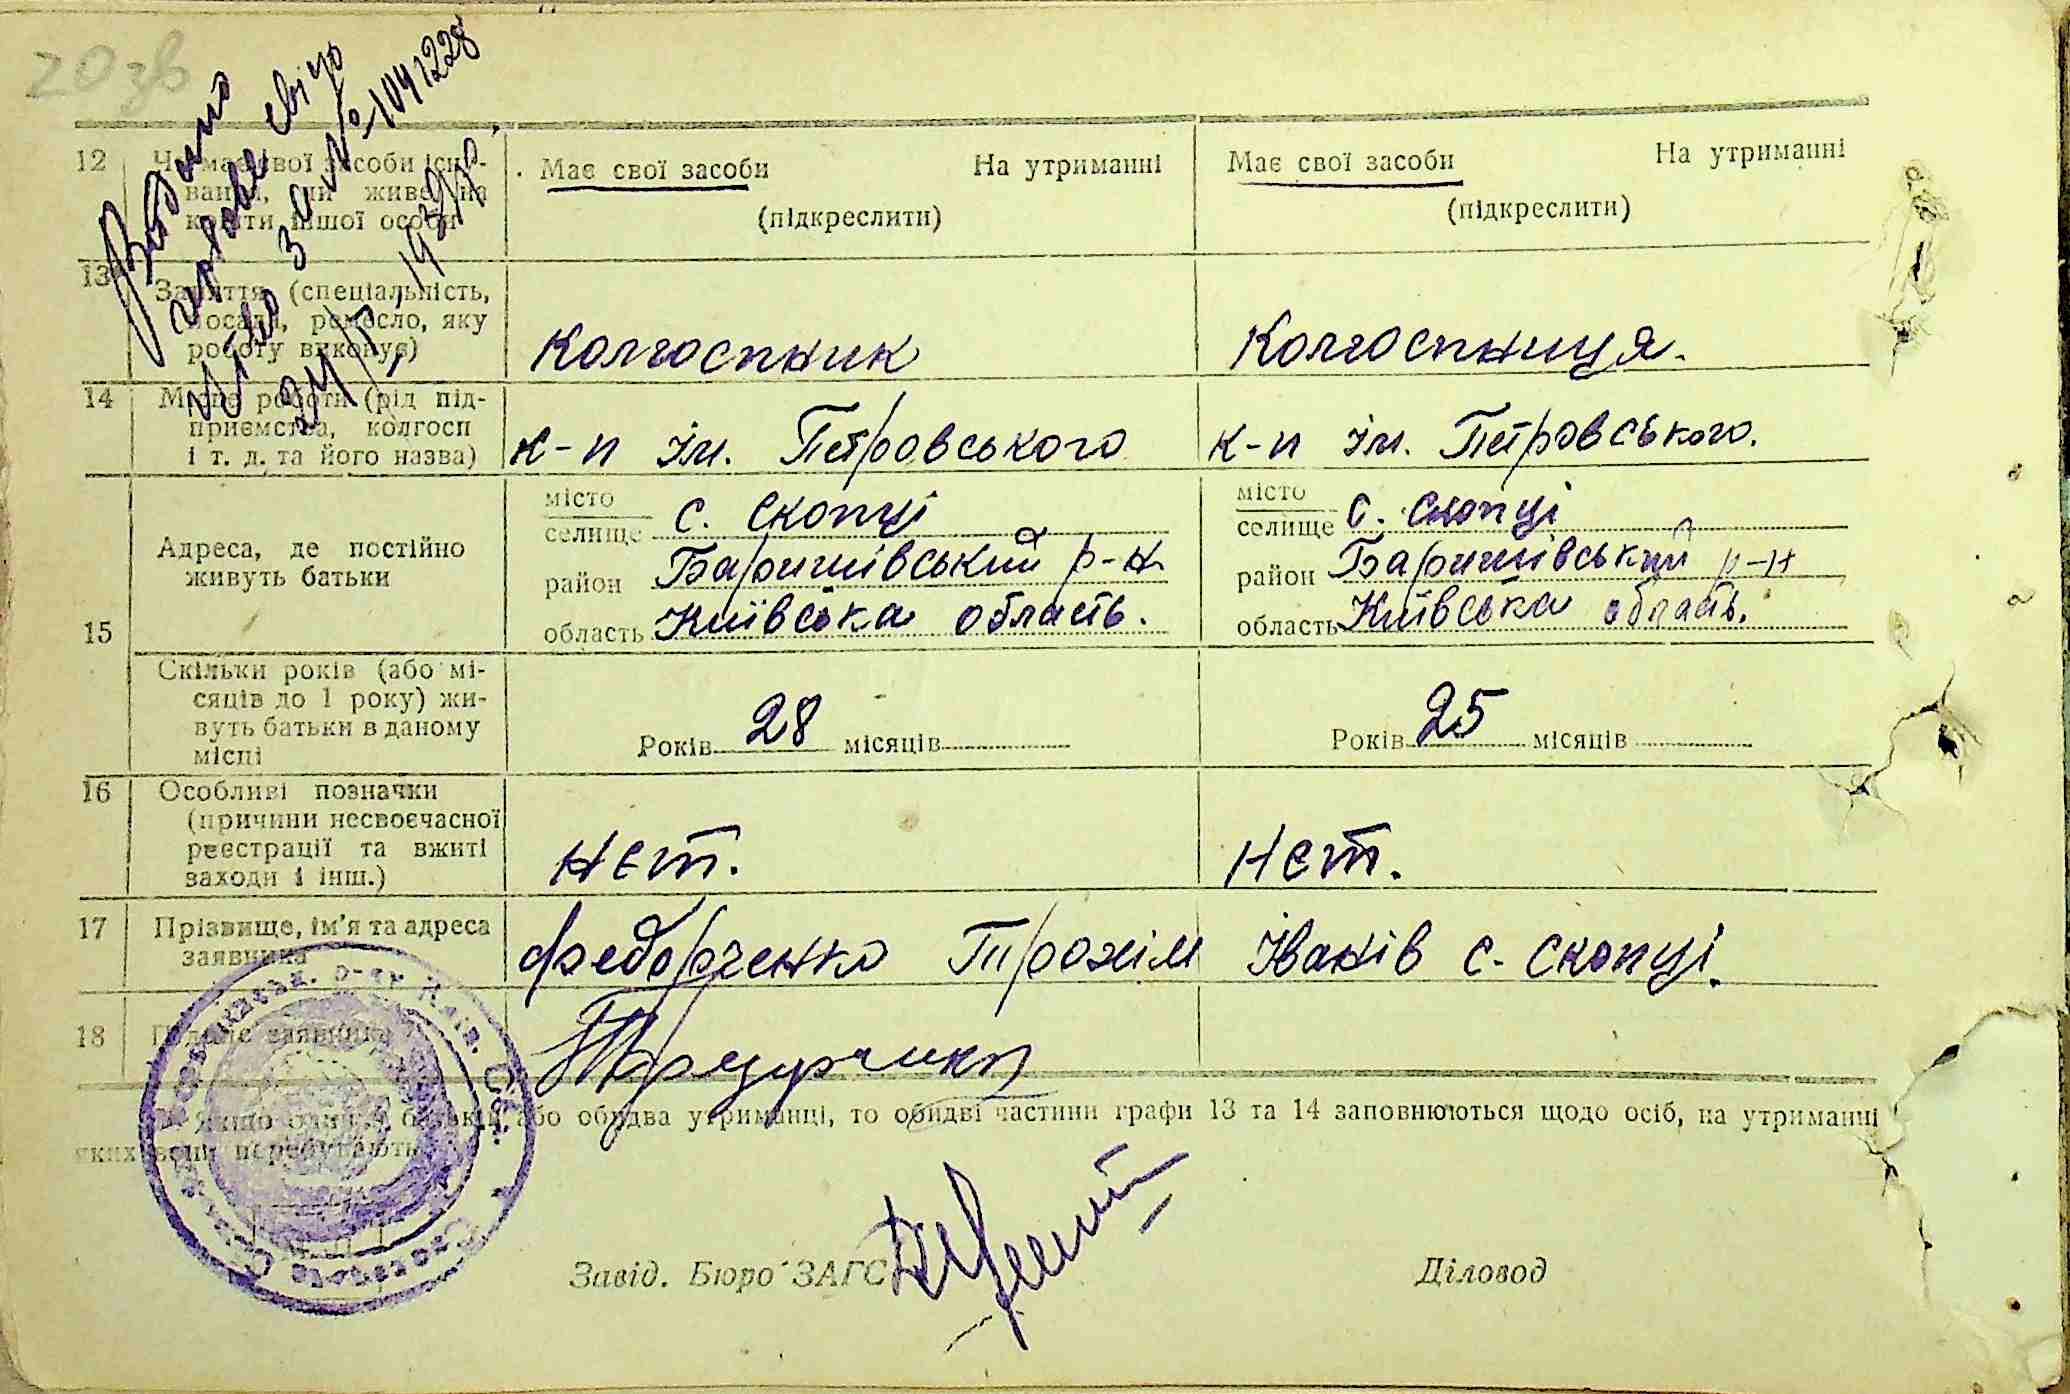 20 зв
Видано
свідо
№ 1041228
12 Чи має свої засоби існування, чи живе на кошти іншої особи
Має свої засоби На утриманні
(підкреслити)
Має свої засоби На утриманні
(підкреслити)
13 Заняття (спеціальність,
посада, ремесло, яку
роботу виконує)
Колгоспник
Колгоспниця.
14 Місце роботи (рід під-
приємства, колгосп
і т. д. та його назва)
к-п Ім. Петровського
к-п Ім. Петровського.
15 Адреса, де постійно
живуть батьки
місто
селище с. Скопці
район Баришівський р-н
область Київська область.
місто
селище с. Скопці
район Баришівський р-н
область Київська область.
Скільки років (або мі-
сяців до 1 року) жи-
вуть батьки в даному
місці
Років 28 місяців
Років 25 місяців
16 Особливі позначки
(причини несвоєчасної
реєстрації та вжиті
заходи і інш.)
нет.
нет.
17 Прізвище, ім'я та адреса
заявника
Федорченко Трохім Іванів с. Скопці.
18 Підпис заявника
якщо один з батьків або обидва утриманці, то обидві частини графи 13 та 14 заповнюються щодо осіб, на утриманні
яких вони перебувають.
Завід. Бюро ЗАГС
Діловод